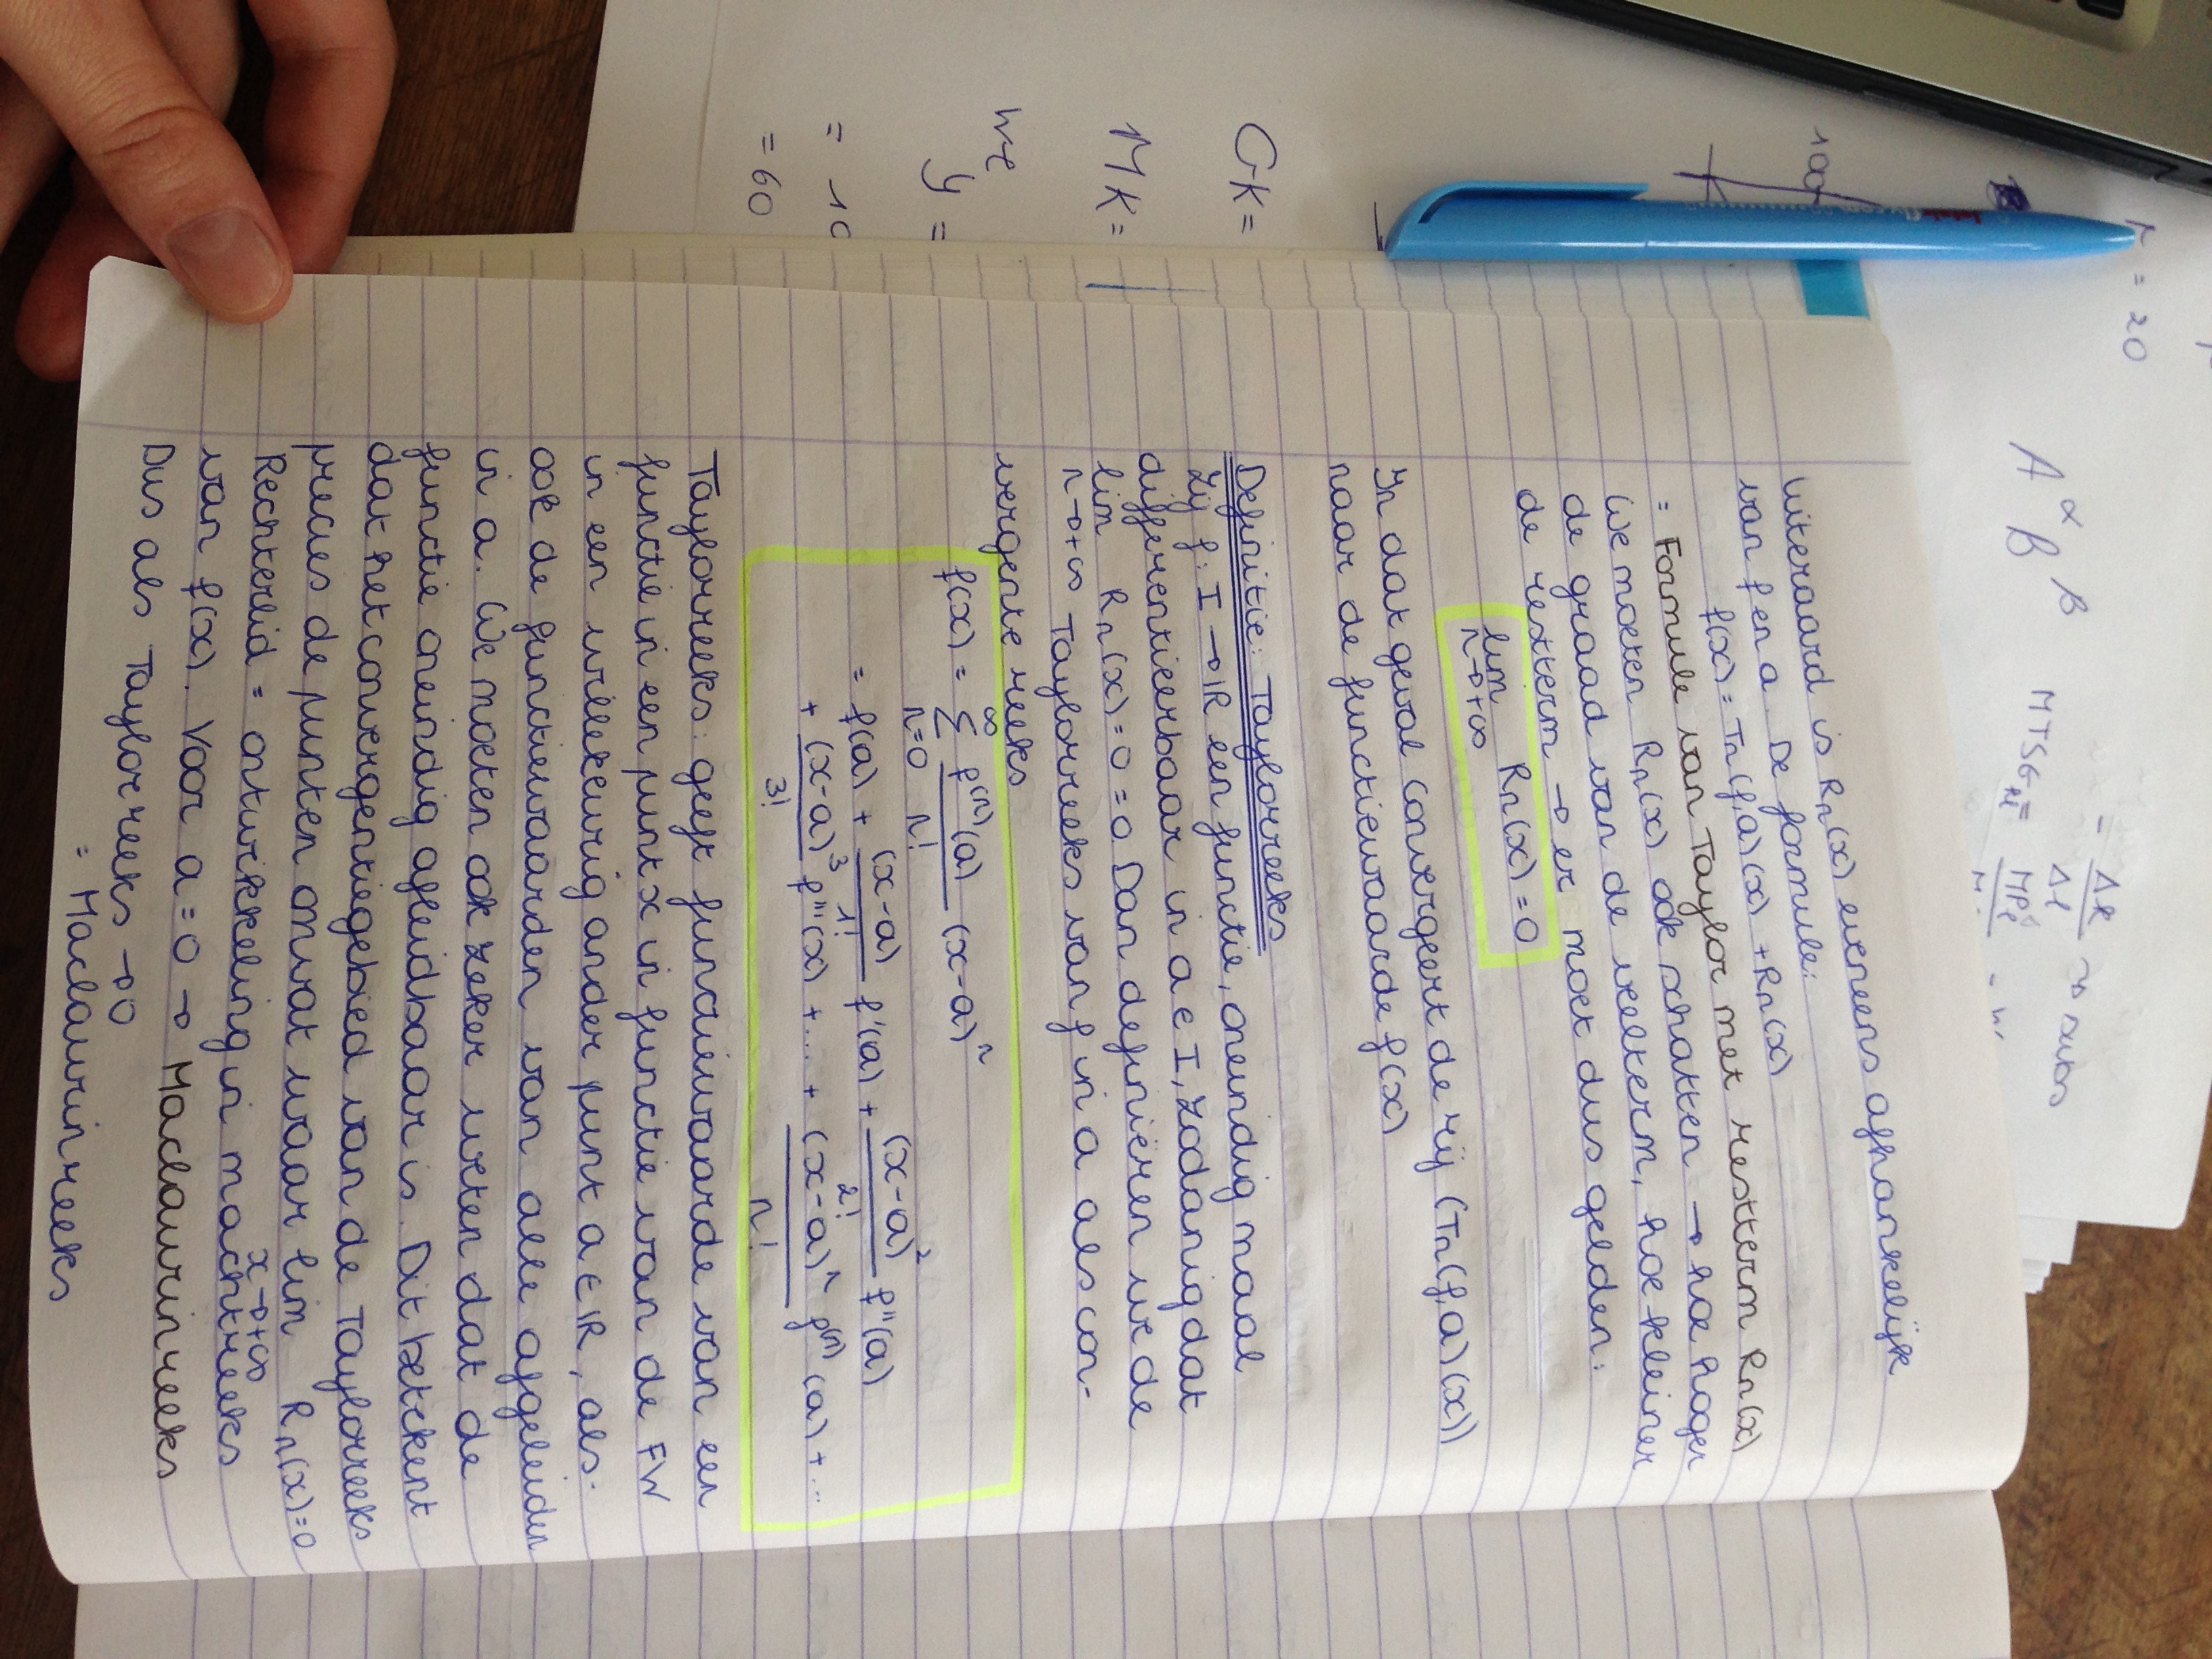 r = 20
A^α B^β
- ΔK / Δl → subs
MTSG_{Kl} = MP_l
100
GK=
MK=
we
y =
= 10
= 60
Uiteraard is Rn(x) eveneens afhankelijk
van f en a. De formule:
f(x) = Tn(f,a)(x) + Rn(x)
= Formule van Taylor met restterm Rn(x)
We moeten Rn(x) ook schatten → hoe hoger
de graad van de veelterm, hoe kleiner
de restterm → er moet dus gelden:
lim Rn(x) = 0
n→+∞
In dat geval convergeert de rij (Tn(f,a)(x))
naar de functiewaarde f(x)
Definitie: Taylorreeks
Zij f: I → ℝ een functie, oneindig maal
differentieerbaar in a ∈ I, zodanig dat
lim Rn(x) = 0 = 0. Dan definiëren we de
n→+∞ Taylorreeks van f in a als con-
vergente reeks
f(x) = ∞ Σ n=0 f^(n)(a) / n! (x-a)^n
= f(a) + (x-a) / 1! f'(a) + (x-a)^2 / 2! f''(a)
+ (x-a)^3 / 3! f'''(x) + ... + (x-a)^n / n! f^(n)(a) + ...
Taylorreeks: geeft functiewaarde van een
functie in een punt x in functie van de FW
in een willekeurig ander punt a ∈ ℝ, als-
ook de functiewaarden van alle afgeleiden
in a. We moeten ook zeker weten dat de
functie oneindig afleidbaar is. Dit betekent
dat het convergentiegebied van de Taylorreeks
precies de punten omvat waar lim Rn(x)=0
x→+∞
Rechterlid = ontwikkeling in machtreeks
van f(x). Voor a = 0 → Maclaurinreeks
Dus als Taylorreeks → 0
= Maclaurinreeks